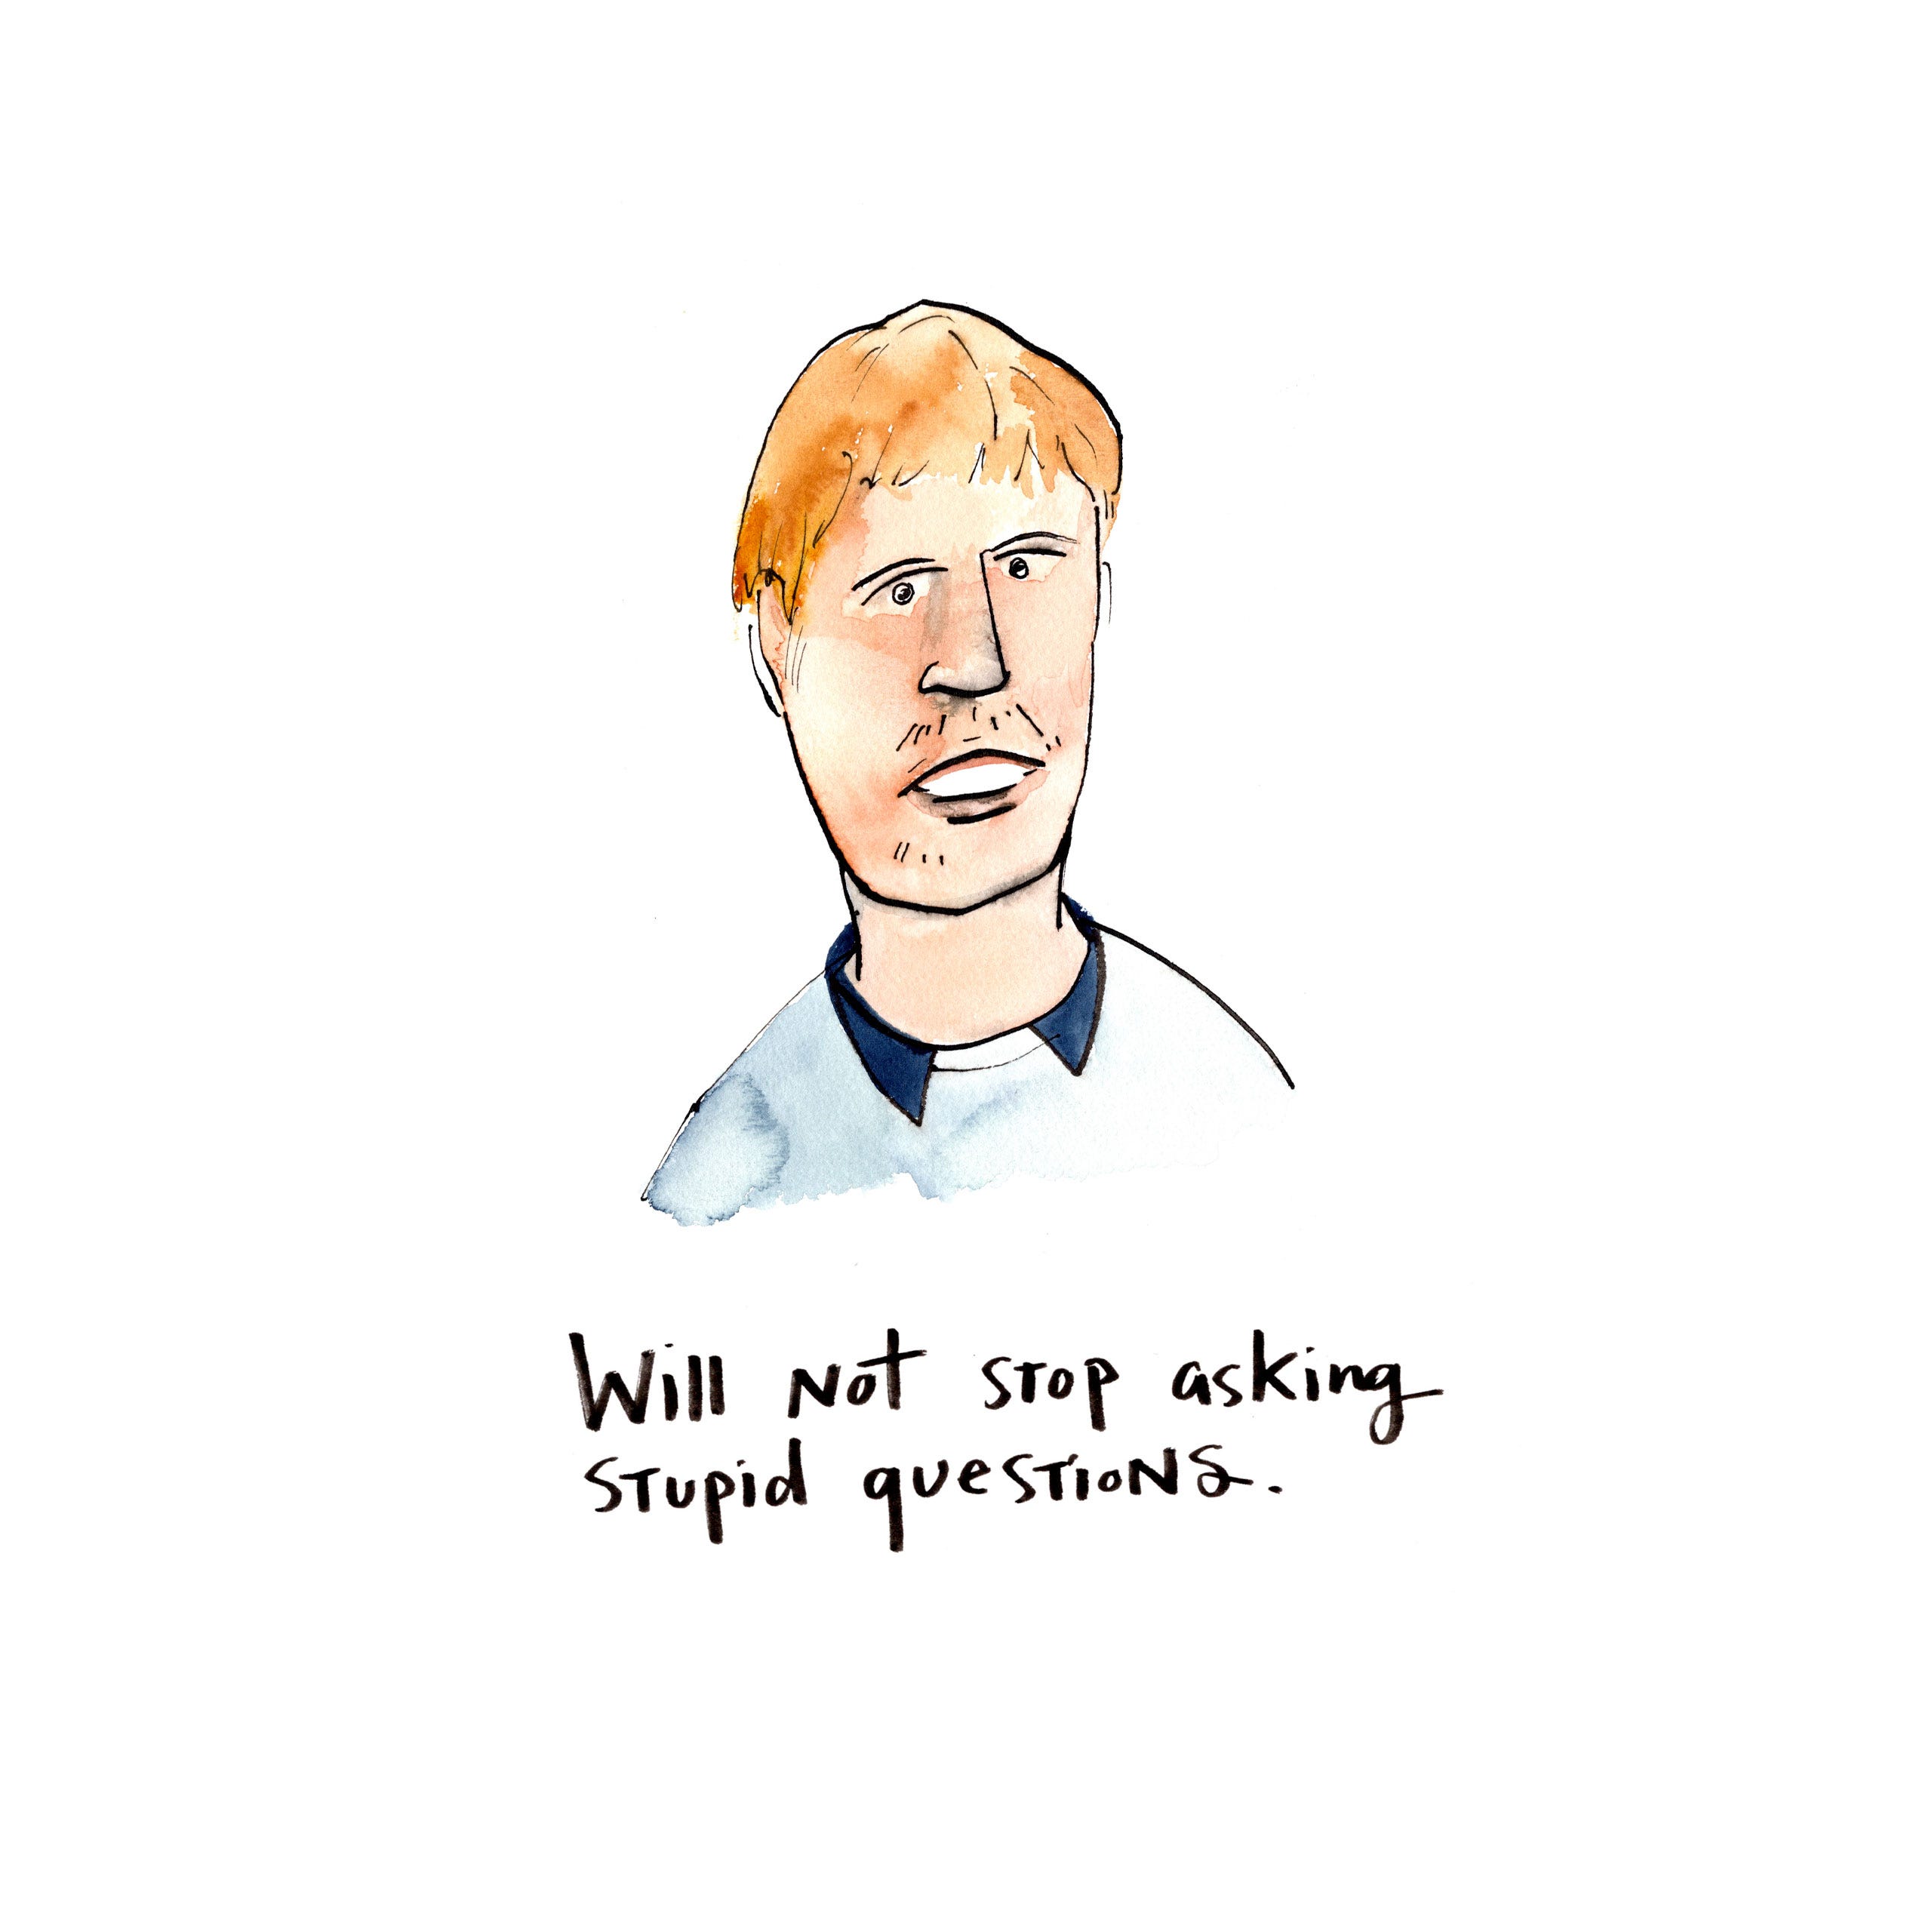 Will not stop asking
stupid questions.